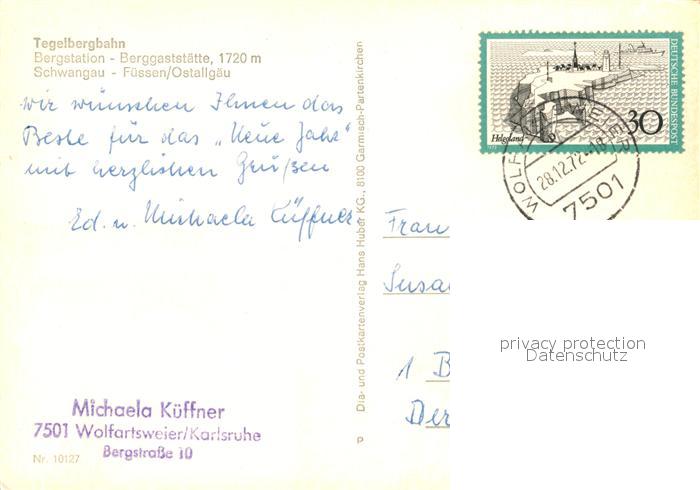 Tegelbergbahn
Bergstation - Berggaststätte, 1720 m
Schwangau - Füssen/Ostallgäu
wir wünschen Ihnen das
Beste für das „Neue Jahr"
mit herzlichen Grüßen
Ed. u. Michaela Küffner
Michaela Küffner
7501 Wolfartsweier/Karlsruhe
Bergstraße 10
Nr. 10127
Dia- und Postkartenverlag Hans Huber KG., 8100 Garmisch-Partenkirchen
P
Helgoland
30
DEUTSCHE BUNDESPOST
28.12.72-18
7501
Frau
Susa
privacy protection
Datenschutz
1 B
Der